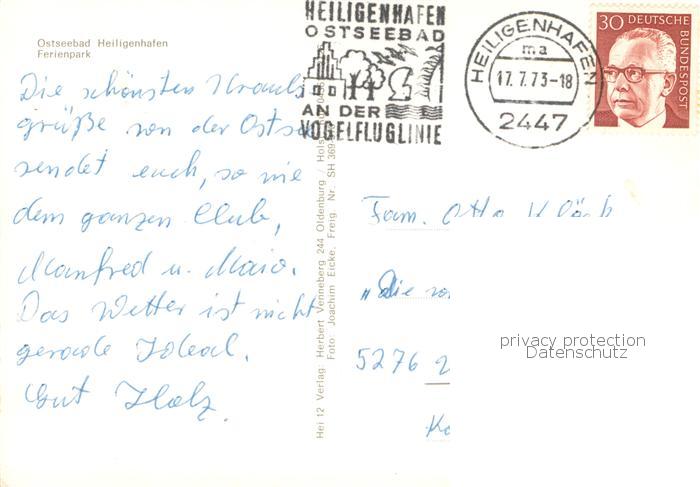 HEILIGENHAFEN
OSTSEEBAD
AN DER
VOGELFLUGLINIE
HEILIGENHAFEN
ma
17.7.73-18
2447
30 DEUTSCHE
BUNDESPOST
Ostseebad Heiligenhafen
Ferienpark
Die schönsten Urlaubs
grüße von der Ostsee
sendet euch, so wie
dem ganzen Club,
Manfred u.
Das Wetter ist nicht
gerade Ideal.
Gut Holz.
Hei 12 Verlag: Herbert Venneberg 244 Oldenburg / Hols
Foto: Joachim Eicke. Freig. Nr. SH 369
Fam. Otto
"Die
5276
privacy protection
Datenschutz